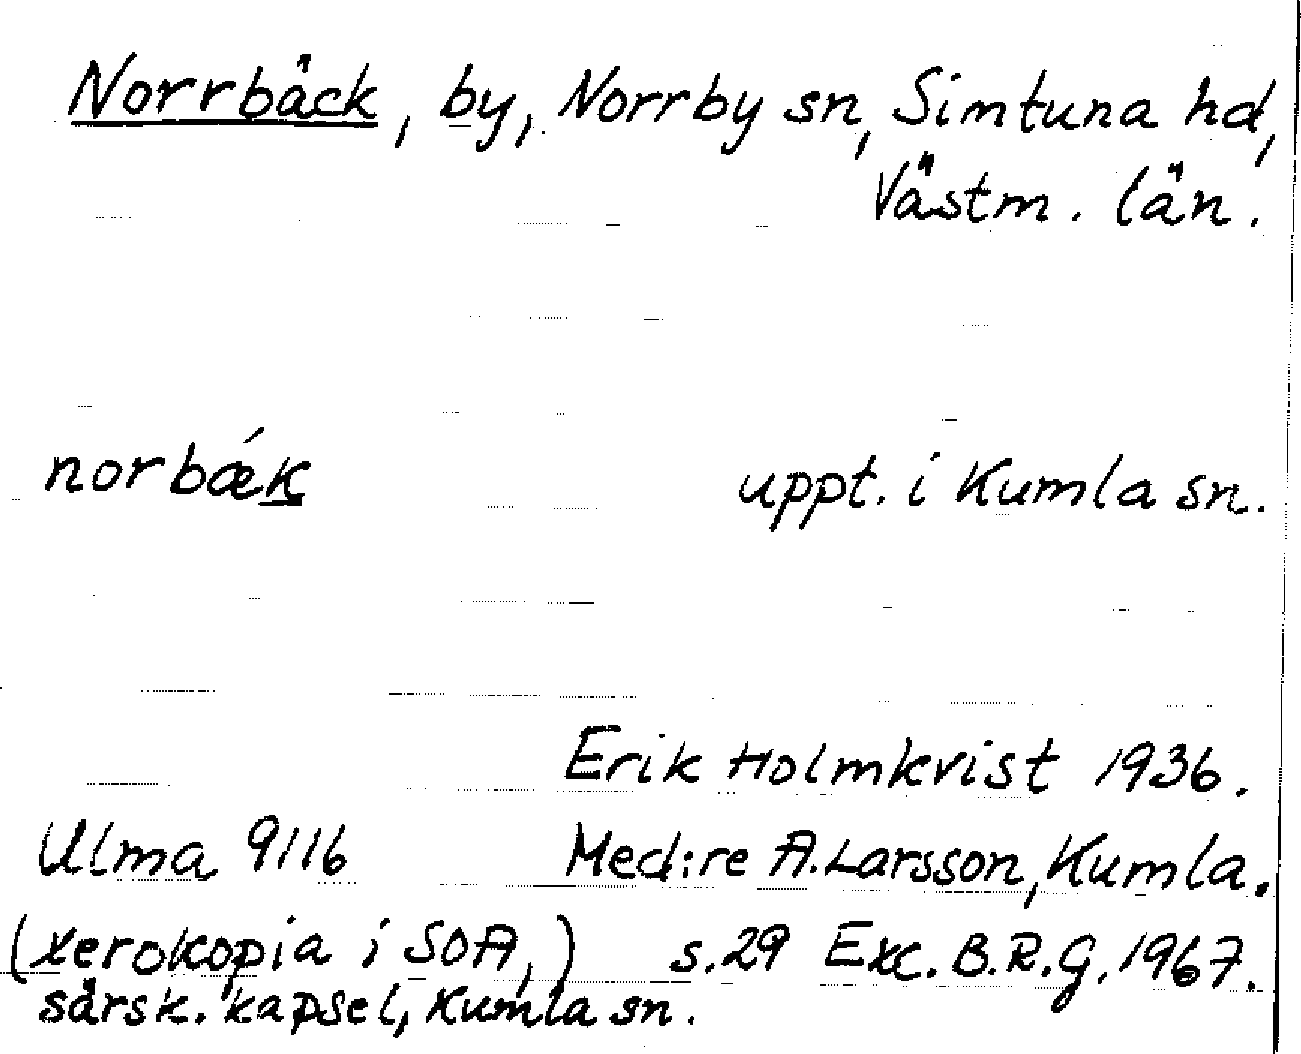 Norrbäck, by, Norrby sn, Simtuna hd,
Västm. län.
norbǽk uppt. i Kumla sn.
Erik Holmkvist 1936.
Ulma 9116 Med:re A. Larsson, Kumla.
(xerokopia i SOA,) s. 29 Exc. B.R.G. 1967.
särsk. kapsel, Kumla sn.